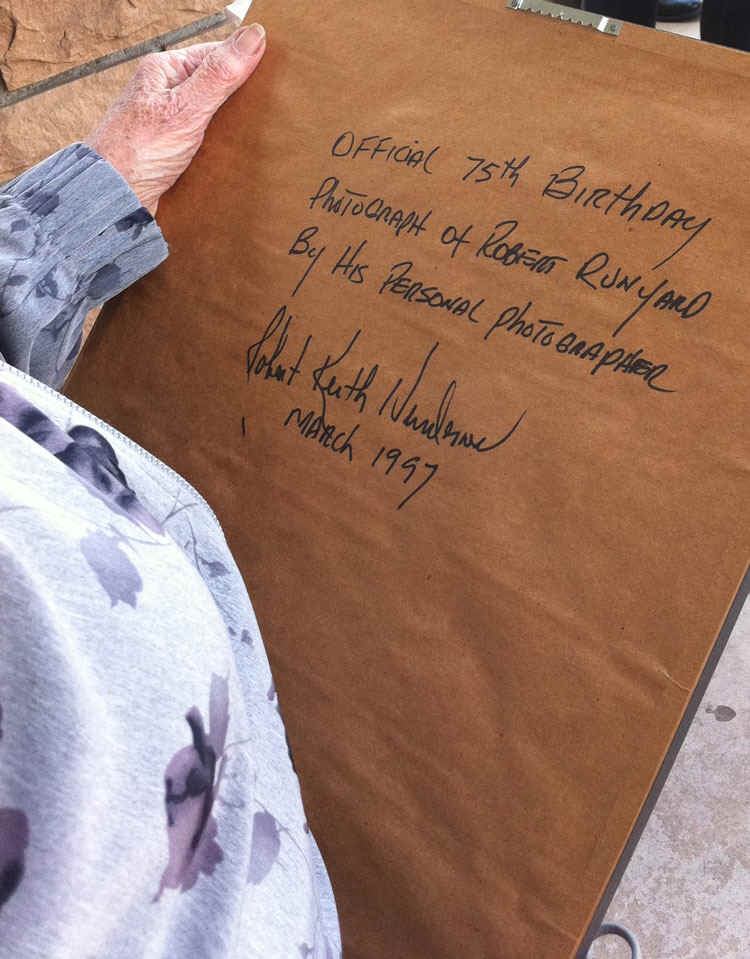 OFFICIAL 75th BIRTHDAY
PHOTOGRAPH of ROBERT RUNYARD
By HIS PERSONAL PHOTOGRAPHER
Robert Keith
MARCH 1997